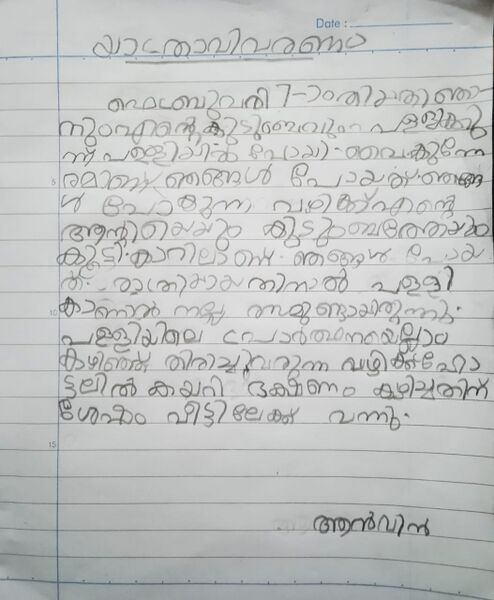 Date :
യാത്രാവിവരണം
ഫെബ്രുവരി 7-ാം തിയതി ഞാ
നും എന്റെ കുടുംബവും പള്ളിക്കു
ന്ന് പള്ളിയിൽ പോയി. വൈകുന്നേ
5 രമിണ് ഞങ്ങൾ പോയത്. ഞങ്ങ
ൾ പോകുന്ന വഴിക്ക് എന്റെ
ആന്റിയെയും കുടുംബത്തേയും
കൂട്ടി. കാറിലാണ് ഞങ്ങൾ പോയ
ത്. രാത്രിയായതിനാൽ പള്ളി
10 കാണാൻ നല്ല രസമുണ്ടായിരുന്നു.
പള്ളിയിലെ പ്രാർത്ഥനയെല്ലാം
കഴിഞ്ഞ് തിരിച്ചുവരുന്ന വഴിക്ക് ഹോ
ട്ടലിൽ കയറി ഭക്ഷണം കഴിച്ചതിന്
ശേഷം വീട്ടിലേക്ക് വന്നു.
15
ആൻവിൻ